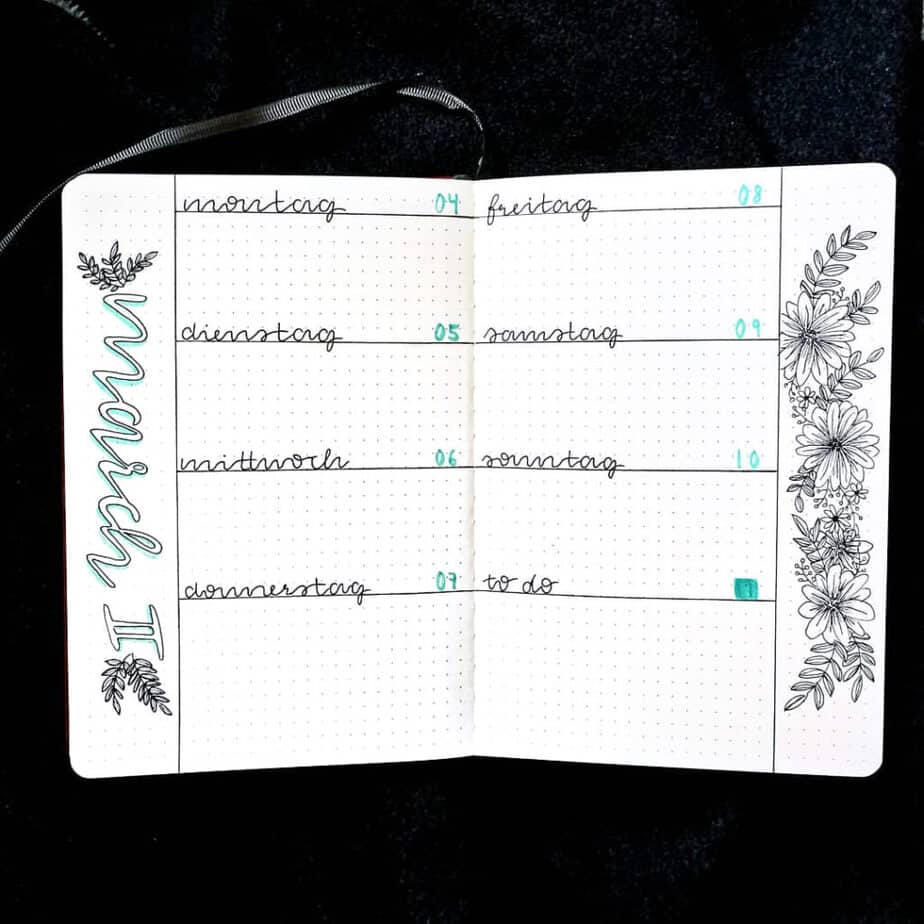 march II
montag 04
dienstag 05
mittwoch 06
donnerstag 07
freitag 08
samstag 09
sonntag 10
to do